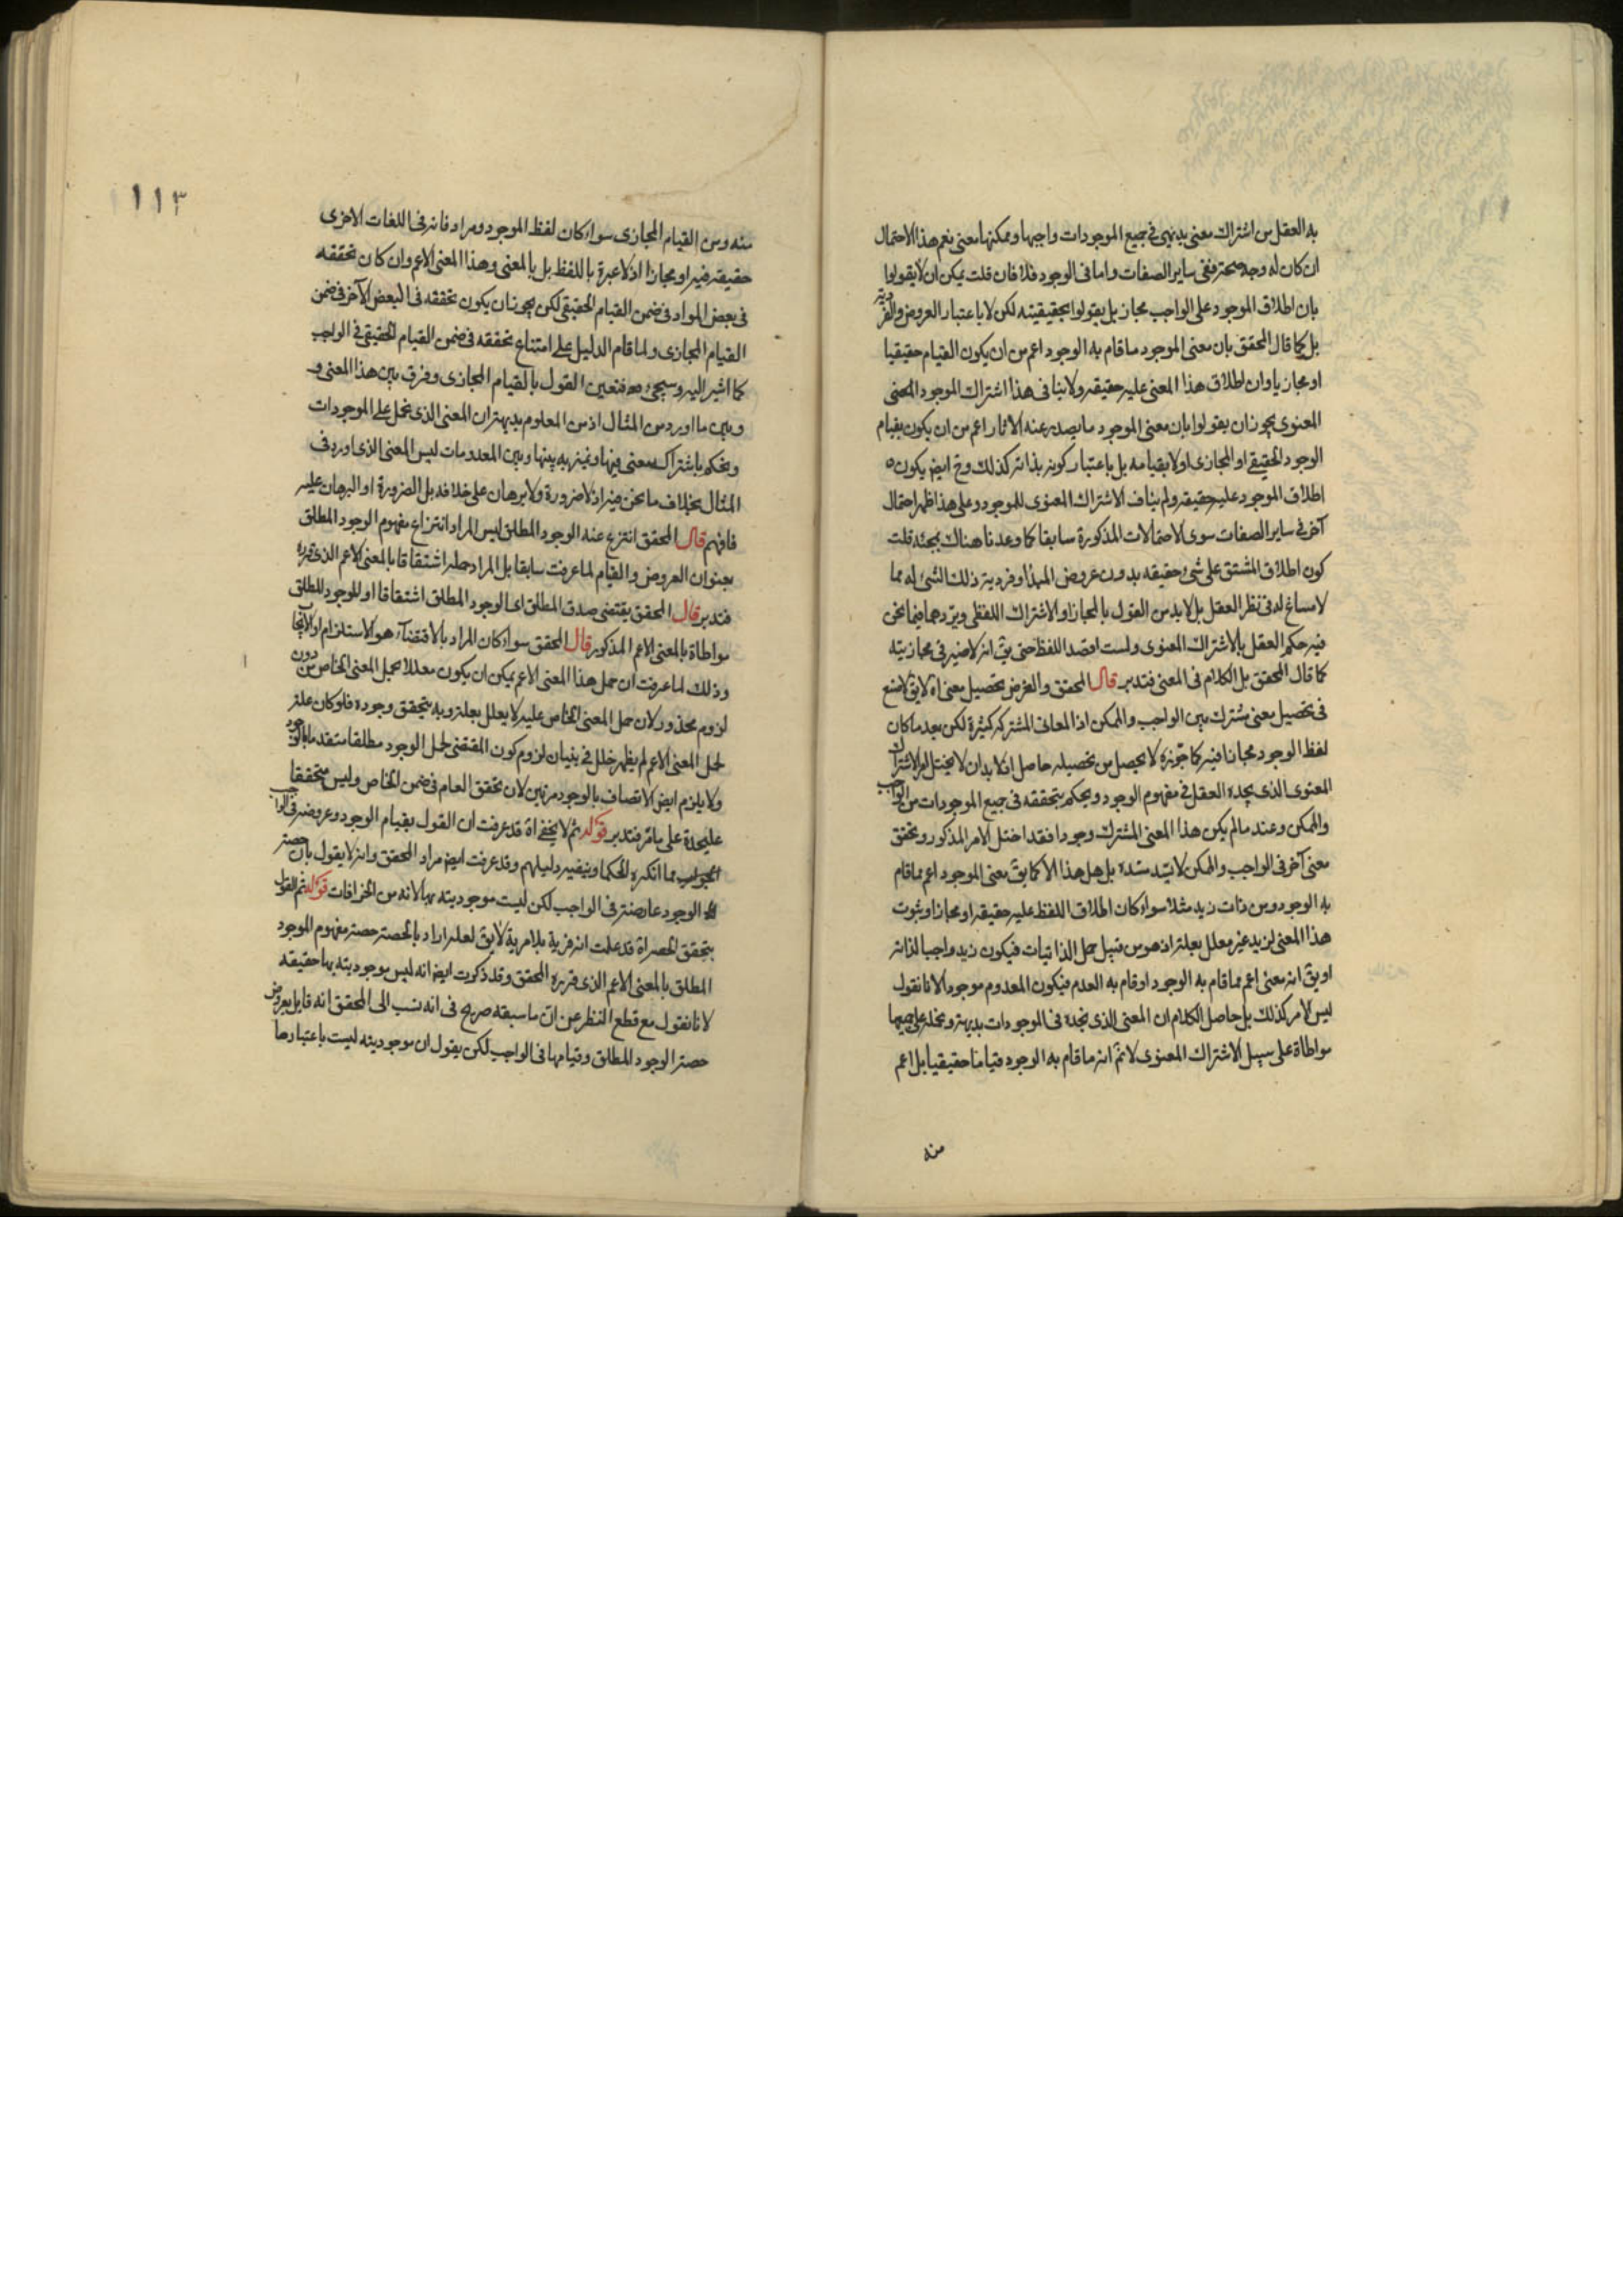 به العقل من اشتراك معنى بديهى فى جميع الموجودات واجبها وممكنها معنى نعم هذا الاحتمال
ان كان له وجه صحة ففى ساير الصفات واما فى الوجود فلا فان قلت يمكن ان لا يقولوا
بان اطلاق الموجود على الواجب مجاز بل يقولوا بحقيقيته لكن لا باعتبار العروض والفردية
بل كما قال المحقق بان معنى الموجود ما قام به الوجود اعم من ان يكون القيام حقيقيا
او مجازيا وان اطلاق هذا المعنى عليه حقيقة ولا ينافى هذا اشتراك الموجود
المعنوى يجوز ان يقولوا بان معنى الموجود ما يصدر عنه الاثار اعم من ان يكون بقيام
الوجود الحقيقى او المجازى اولا بقيامه بل باعتبار كونه بذاته كذلك وح ايض يكون
اطلاق الموجود عليه حقيقة ولم يناف الاشتراك المعنوى للموجود وعلى هذا ظهر احتمال
آخر فى ساير الصفات سوى الاحتمالات المذكورة سابقا كما وعدنا هناك بحثه قلت
كون اطلاق المشتق على شىء حقيقه بدون عروض المبدا وفردية ذلك الشىء له مما
لا مساغ له فى نظر العقل بل لا بد من القول بالمجاز او الاشتراك اللفظى ويردهما فيما نحن
فيه حكم العقل بالاشتراك المعنوى ولست اقصد اللفظ حتى يق انه لا ضير فى مجازيته
كما قال المحقق بل الكلام فى المعنى فتدبر قال المحقق والغرض تحصيل معنى اه لا يق لا منع
فى تحصيل معنى مشترك بين الواجب والممكن اذ المعانى المشتركة كثيرة لكن بعد ما كان
لفظ الوجود مجازا فيه كما جوزه لا يحصل من تحصيله حاصل اذ لا بد ان لا يختل امر الاشتراك
المعنوى الذى يجده العقل فى مفهوم الوجود ويحكم بتحققه فى جميع الموجودات من الواجب
والممكن وعند ما لم يكن هذا المعنى المشترك وجودا فقد اختل الامر المذكور وتحقق
معنى آخر فى الواجب والممكن لا يسد مسده بل هل هذا الا كما يق معنى الموجود اعم مما قام
به الوجود ومن ذات زيد مثلا سواء كان اطلاق اللفظ عليه حقيقة او مجازا وثبوت
هذا المعنى لزيد غير معلل بعلة اذ هو من قبيل حمل الذاتيات فيكون زيد واجبا لذاته
او يق انه معنى اعم مما قام به الوجود او قام به العدم فيكون المعدوم موجودا لانا نقول
ليس الامر كذلك بل حاصل الكلام ان المعنى الذى نجده فى الموجودات بديهة ونحمله على جميعها
مواطاة على سبيل الاشتراك المعنوى لا نم انه ما قام به الوجود قياما حقيقيا بل اعم
منه
١١٣
منه ومن القيام المجازى سواء كان لفظ الموجود ومرادفاته فى اللغات الاخرى
حقيقة فيه او مجازا اذ لا عبرة باللفظ بل بالمعنى وهذا المعنى الاعم وان كان تحققه
فى بعض المواد فى ضمن القيام الحقيقى لكن يجوز ان يكون تحققه فى البعض الآخر فى ضمن
القيام المجازى ولما قام الدليل على امتناع تحققه فى ضمن القيام الحقيقى فى الواجب
كما اشير اليه وسيجىء فتعين القول بالقيام المجازى وفرق بين هذا المعنى و
وبين ما اورد من المثال اذ من المعلوم بديهة ان المعنى الذى نحمل على الموجودات
ونحكم باشتراك معنى فيها ونميز به بينها وبين المعدومات ليس المعنى الذى اورد فى
المثال بخلاف ما نحن فيه اذ لا ضرورة ولا برهان على خلافه بل الضرورة او البرهان عليه
فافهم قال المحقق انتزع عنه الوجود المطلق ليس المراد انتزاع مفهوم الوجود المطلق
بعنوان العروض والقيام لما عرفت سابقا بل المراد حمله اشتقاقا بالمعنى الاعم الذى قرره
فتدبر قال المحقق يقتضى صدق المطلق اى الوجود المطلق اشتقاقا او للوجود المطلق
مواطاة بالمعنى الاعم المذكور قال المحقق سواء كان المراد بالاقتضآء هو الاستلزام او
وذلك لما عرفت ان حمل هذا المعنى الاعم يمكن ان يكون معللا بحمل المعنى الخاص من دون
لزوم محذور لان حمل المعنى الخاص عليه لا يعلل بعلة وبه يتحقق وجوده فلو كان علة
لحمل المعنى الاعم لم يظهر خلل فى بنيان لزوم كون المقتضى لحمل الوجود مطلقا متقدما بالوجود
ولا يلزم ايض الاتصاف بالوجود مرتين لان تحقق العام فى ضمن الخاص وليس متحققا
عليحدة على ما مر فتدبر قوله ثم لا يخفى اه قد عرفت ان القول بقيام الوجود وعروضه فى الواجب
مما انكره الحكما وينفيه دليلهم وقد عرفت ايض مراد المحقق وانه لا يقول بان حصة
الوجود عارضة فى الواجب لكن ليست موجوديته بها لانه من الخرافات قوله ثم القول
بتحقق الحصة اه قد علمت انه فرية بلا مرية لا يق لعله اراد بالحصة حصة مفهوم الموجود
المطلق بالمعنى الاعم الذى قرره المحقق وقد ذكرت ايض انه ليس موجوديته بها حقيقه
لانا نقول مع قطع النظر عن ان ما سبقه صريح فى انه نسب الى المحقق انه قايل بعروض
حصة الوجود المطلق وقيامها فى الواجب لكن يقول ان موجوديته ليست باعتبارها